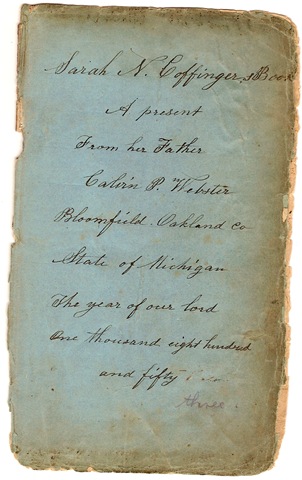 Sarah N. Coffinger,s Book
A present
From her Father
Calvin P. Webster
Bloomfield. Oakland Co
State of Michigan
The year of our lord
One thousand eight hundred
and fifty
three.